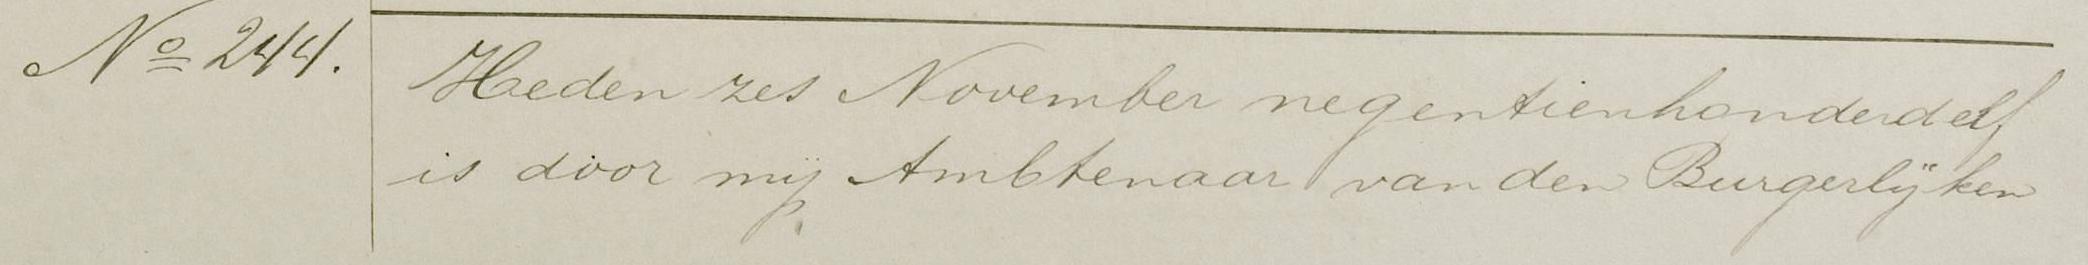 Nº 244.
Heden zes November negentienhonderd elf
is door mij Ambtenaar van den Burgerlijken